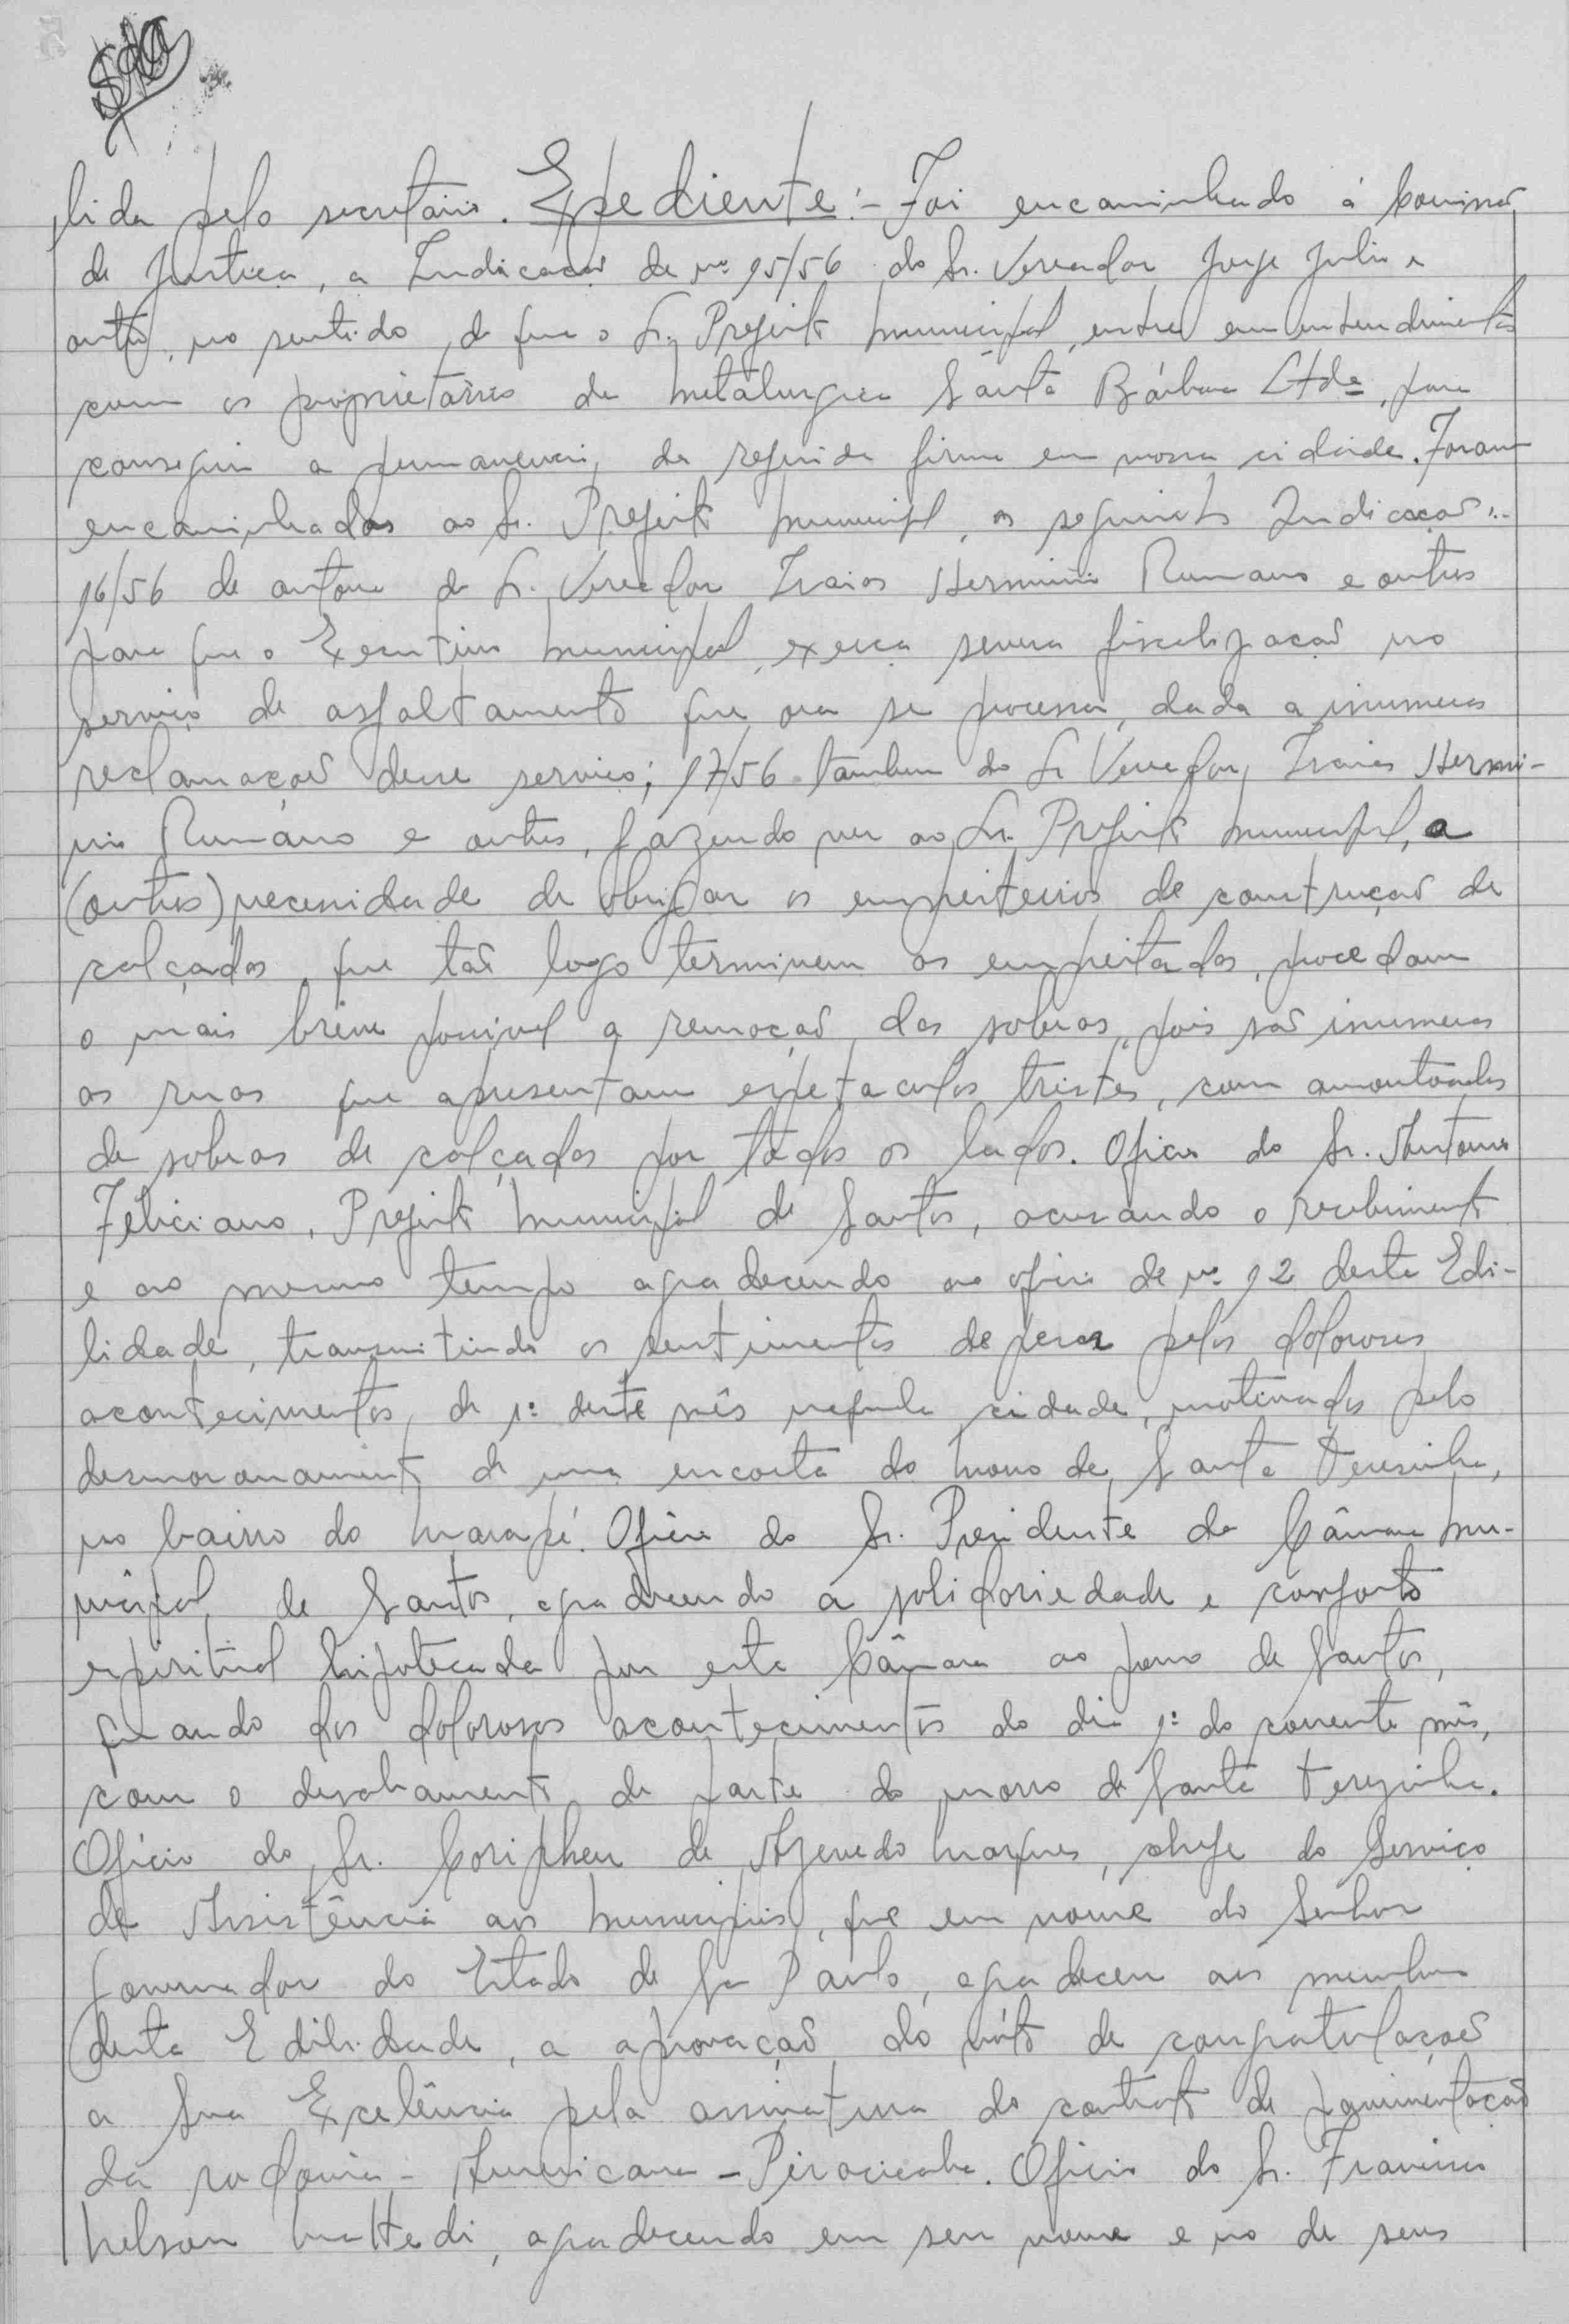 lida pelo secretário. Expediente:- Foi encaminhado á Comissão
de Justiça, a Indicação de nº 15/56 do Sr. Vereador Jorge Julio e
outro, no sentido, de que o Sr. Prefeito Municipal, entre em entendimentos
com os proprietários da Metalurgica Santa Bárbara Ltda, para
conseguir a permanencia, da referida firma em nossa cidade. Foram
encaminhados ao Sr. Prefeito Municipal, as seguintes Indicações:-
16/56 de autoria do Sr. Vereador Izaias Herminio Romano e outros
para que o Executivo Municipal, exerça severa fiscalização no
serviço de asfaltamento que ora se processa, dada a inumeras
reclamações desse serviço; 17/56 tambem do Sr Vereador, Izaias Hermi-
nio Romano e outros, fazendo ver ao Sr. Prefeito Municipal, a
(outros) necessidade de obrigar os empreiteiros de construção de
calçadas, que tão logo terminem as empeitadas, procedam
o mais breve possivel a remoção das sobras, pois são inumeras
as ruas que apresentam espetaculos tristes, com amontoados
de sobras de calçadas por todos os lados. Oficio do Sr. Antonio
Feliciano, Prefeito Municipal de Santos, acusando o recebimento
e ao mesmo tempo agradecendo ao oficio de nº 12 desta Edi-
lidade, transmitindo os sentimentos de pesar pelos dolorosos
acontecimentos, de 1º deste mês naquela cidade, motivados pelo
desmoronamento de uma encosta do Morro de Santa Teresinha,
no bairro do Marapé. Oficio do Sr. Presidente da Câmara Mu-
nicipal, de Santos, agradecendo a solidariedade e conforto
espiritual hipotecada por esta Câmara ao povo de Santos,
quando dos dolorosos acontecimentos do dia 1º do corrente mês,
com o desabamento de parte do morro de Santa Terezinha.
Oficio do Sr. Coripheu de Azevedo Marques, chefe do Serviço
de Assistência aos Municipios, que em nome do Senhor
Governador do Estado de São Paulo, agradecem aos membros
desta Edilidade, a aprovação do vóto de congratulações
a Sua Excelência pela assinatura do contrato de pavimentação
da rodovia - Americana - Piracicaba. Oficio do Sr. Francisco
Nelson Mattedi, agradecendo em seu nome e no de seus